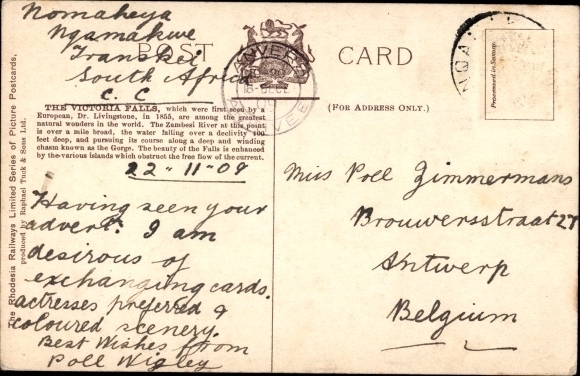 Nomaheya
Nqamakwe
Transkei
South Africa
C. C
POST CARD
ANVERS
(FOR ADDRESS ONLY.)
THE VICTORIA FALLS, which were first seen by a
European, Dr. Livingstone, in 1855, are among the greatest
natural wonders in the world. The Zambesi River at this point
is over a mile broad, the water falling over a declivity 400
feet deep, and pursuing its course along a deep and winding
chasm known as the Gorge. The beauty of the Falls is enhanced
by the various islands which obstruct the free flow of the current.
22-11-09
Having seen your
advert. I am
desirous of
exchanging cards.
actresses preferred &
coloured scenery.
Best Wishes from
Poll Wigley
Miss Poll Zimmermans
Brouwersstraat 27
Antwerp
Belgium
The Rhodesia Railways Limited Series of Picture Postcards,
produced by Raphael Tuck & Sons Ltd.
Processed in Saxony